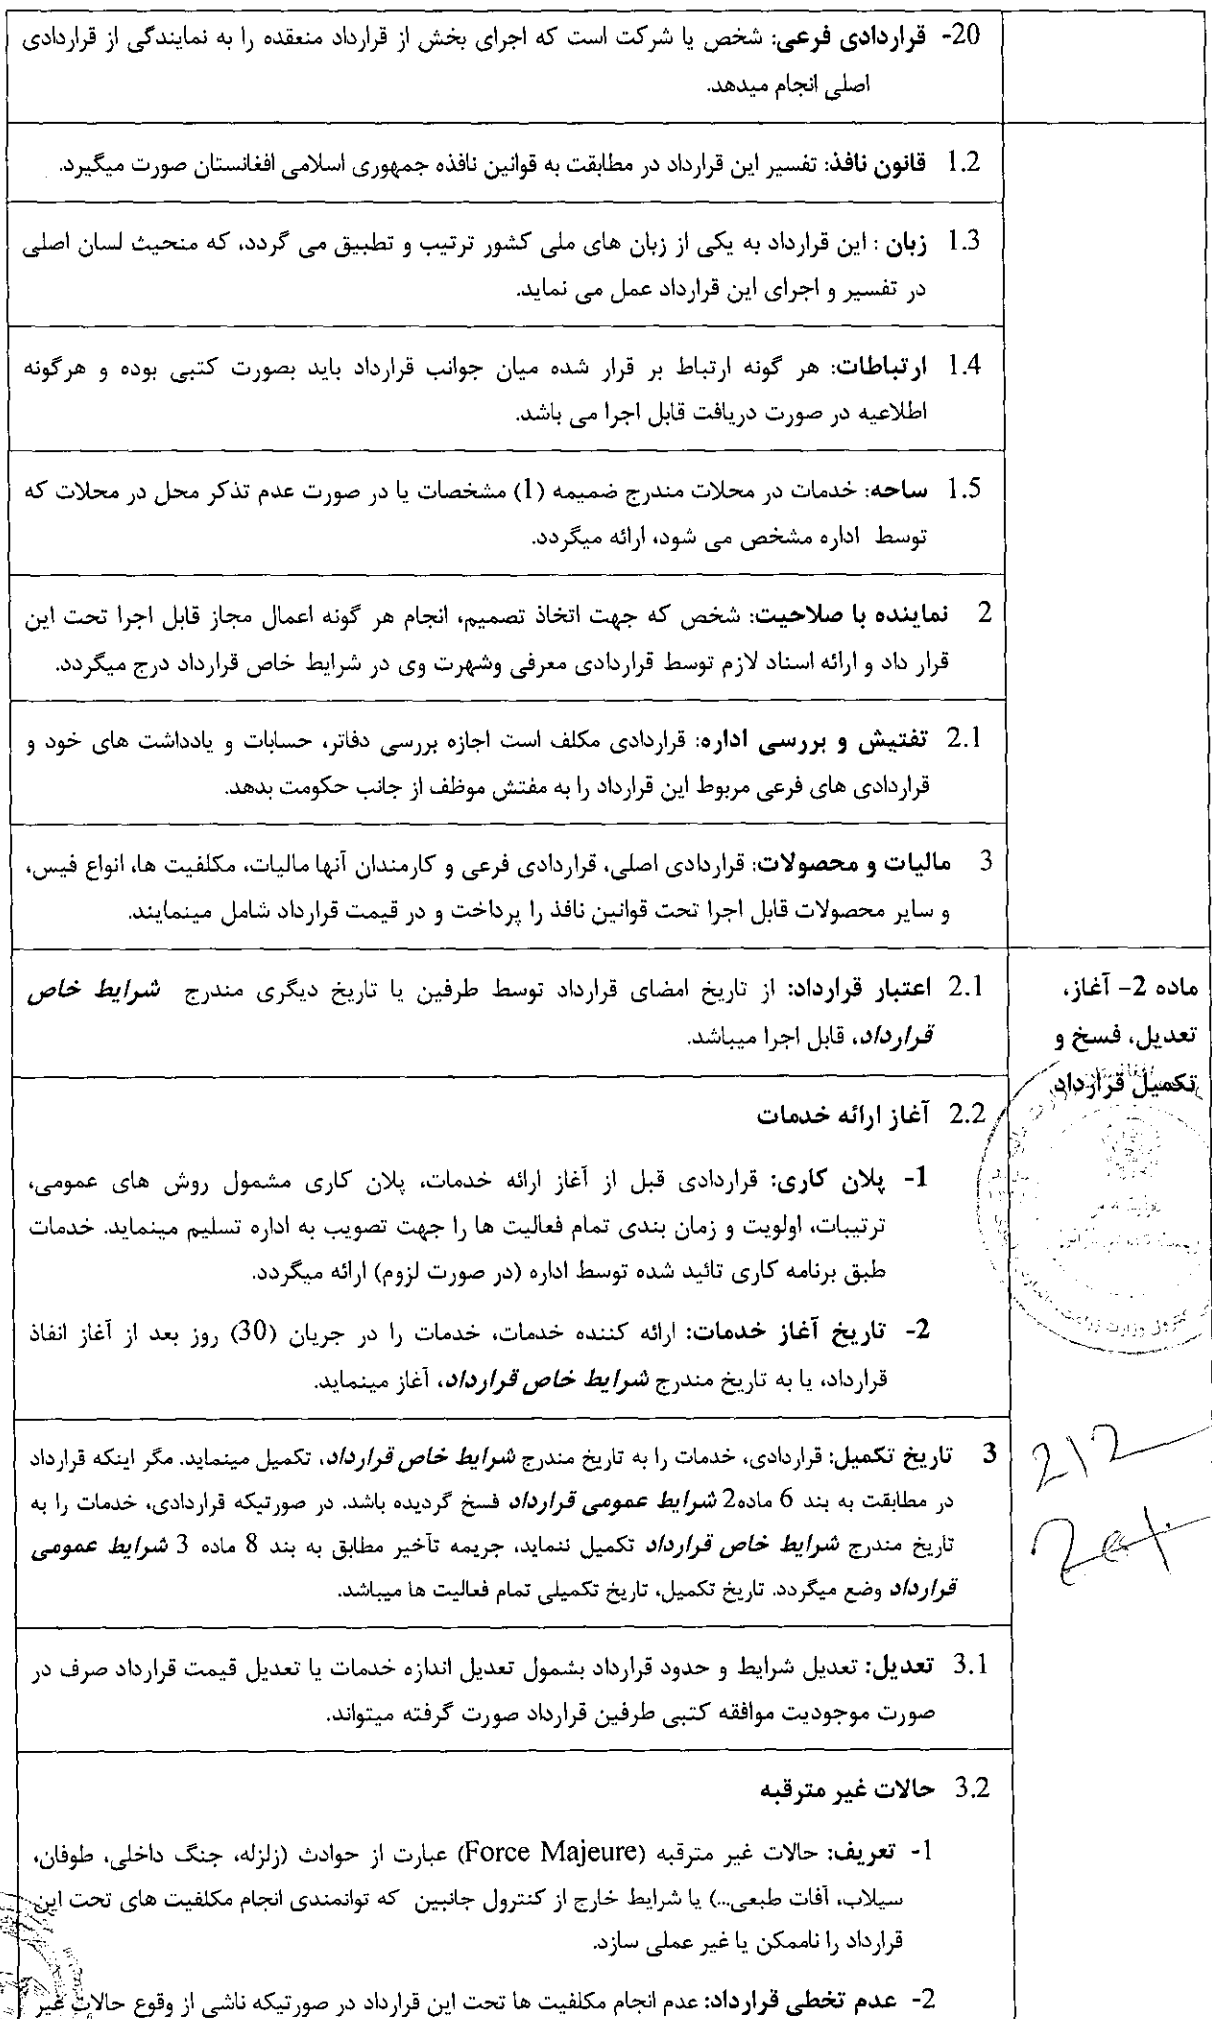 20- قراردادی فرعی: شخص یا شرکت است که اجرای بخش از قرارداد منعقده را به نمایندگی از قراردادی
اصلی انجام میدهد.
1.2 قانون نافذ: تفسیر این قرارداد در مطابقت به قوانین نافذه جمهوری اسلامی افغانستان صورت میگیرد.
1.3 زبان : این قرارداد به یکی از زبان های ملی کشور ترتیب و تطبیق می گردد، که منحیث لسان اصلی
در تفسیر و اجرای این قرارداد عمل می نماید.
1.4 ارتباطات: هر گونه ارتباط بر قرار شده میان جوانب قرارداد باید بصورت کتبی بوده و هرگونه
اطلاعیه در صورت دریافت قابل اجرا می باشد.
1.5 ساحه: خدمات در محلات مندرج ضمیمه (1) مشخصات یا در صورت عدم تذکر محل در محلات که
توسط اداره مشخص می شود، ارائه میگردد.
2 نماینده با صلاحیت: شخص که جهت اتخاذ تصمیم، انجام هر گونه اعمال مجاز قابل اجرا تحت این
قرار داد و ارائه اسناد لازم توسط قراردادی معرفی وشهرت وی در شرایط خاص قرارداد درج میگردد.
2.1 تفتیش و بررسی اداره: قراردادی مکلف است اجازه بررسی دفاتر، حسابات و یادداشت های خود و
قراردادی های فرعی مربوط این قرارداد را به مفتش موظف از جانب حکومت بدهد.
3 مالیات و محصولات: قراردادی اصلی، قراردادی فرعی و کارمندان آنها مالیات، مکلفیت ها، انواع فیس،
و سایر محصولات قابل اجرا تحت قوانین نافذ را پرداخت و در قیمت قرارداد شامل مینمایند.
ماده 2- آغاز،
تعدیل، فسخ و
تکمیل قرارداد
2.1 اعتبار قرارداد: از تاریخ امضای قرارداد توسط طرفین یا تاریخ دیگری مندرج شرایط خاص
قرارداد، قابل اجرا میباشد.
2.2 آغاز ارائه خدمات
1- پلان کاری: قراردادی قبل از آغاز ارائه خدمات، پلان کاری مشمول روش های عمومی،
ترتیبات، اولویت و زمان بندی تمام فعالیت ها را جهت تصویب به اداره تسلیم مینماید. خدمات
طبق برنامه کاری تائید شده توسط اداره (در صورت لزوم) ارائه میگردد.
2- تاریخ آغاز خدمات: ارائه کننده خدمات، خدمات را در جریان (30) روز بعد از آغاز انفاذ
قرارداد، یا به تاریخ مندرج شرایط خاص قرارداد، آغاز مینماید.
212
3 تاریخ تکمیل: قراردادی، خدمات را به تاریخ مندرج شرایط خاص قرارداد، تکمیل مینماید. مگر اینکه قرارداد
در مطابقت به بند 6 ماده2 شرایط عمومی قرارداد فسخ گردیده باشد. در صورتیکه قراردادی، خدمات را به
تاریخ مندرج شرایط خاص قرارداد تکمیل ننماید، جریمه تأخیر مطابق به بند 8 ماده 3 شرایط عمومی
قرارداد وضع میگردد. تاریخ تکمیل، تاریخ تکمیلی تمام فعالیت ها میباشد.
3.1 تعدیل: تعدیل شرایط و حدود قرارداد بشمول تعدیل اندازه خدمات یا تعدیل قیمت قرارداد صرف در
صورت موجودیت موافقه کتبی طرفین قرارداد صورت گرفته میتواند.
3.2 حالات غیر مترقبه
1- تعریف: حالات غیر مترقبه (Force Majeure) عبارت از حوادث (زلزله، جنگ داخلی، طوفان،
سیلاب، آفات طبعی...) یا شرایط خارج از کنترول جانبین که توانمندی انجام مکلفیت های تحت این
قرارداد را ناممکن یا غیر عملی سازد.
2- عدم تخطی قرارداد: عدم انجام مکلفیت ها تحت این قرارداد در صورتیکه ناشی از وقوع حالات غیر